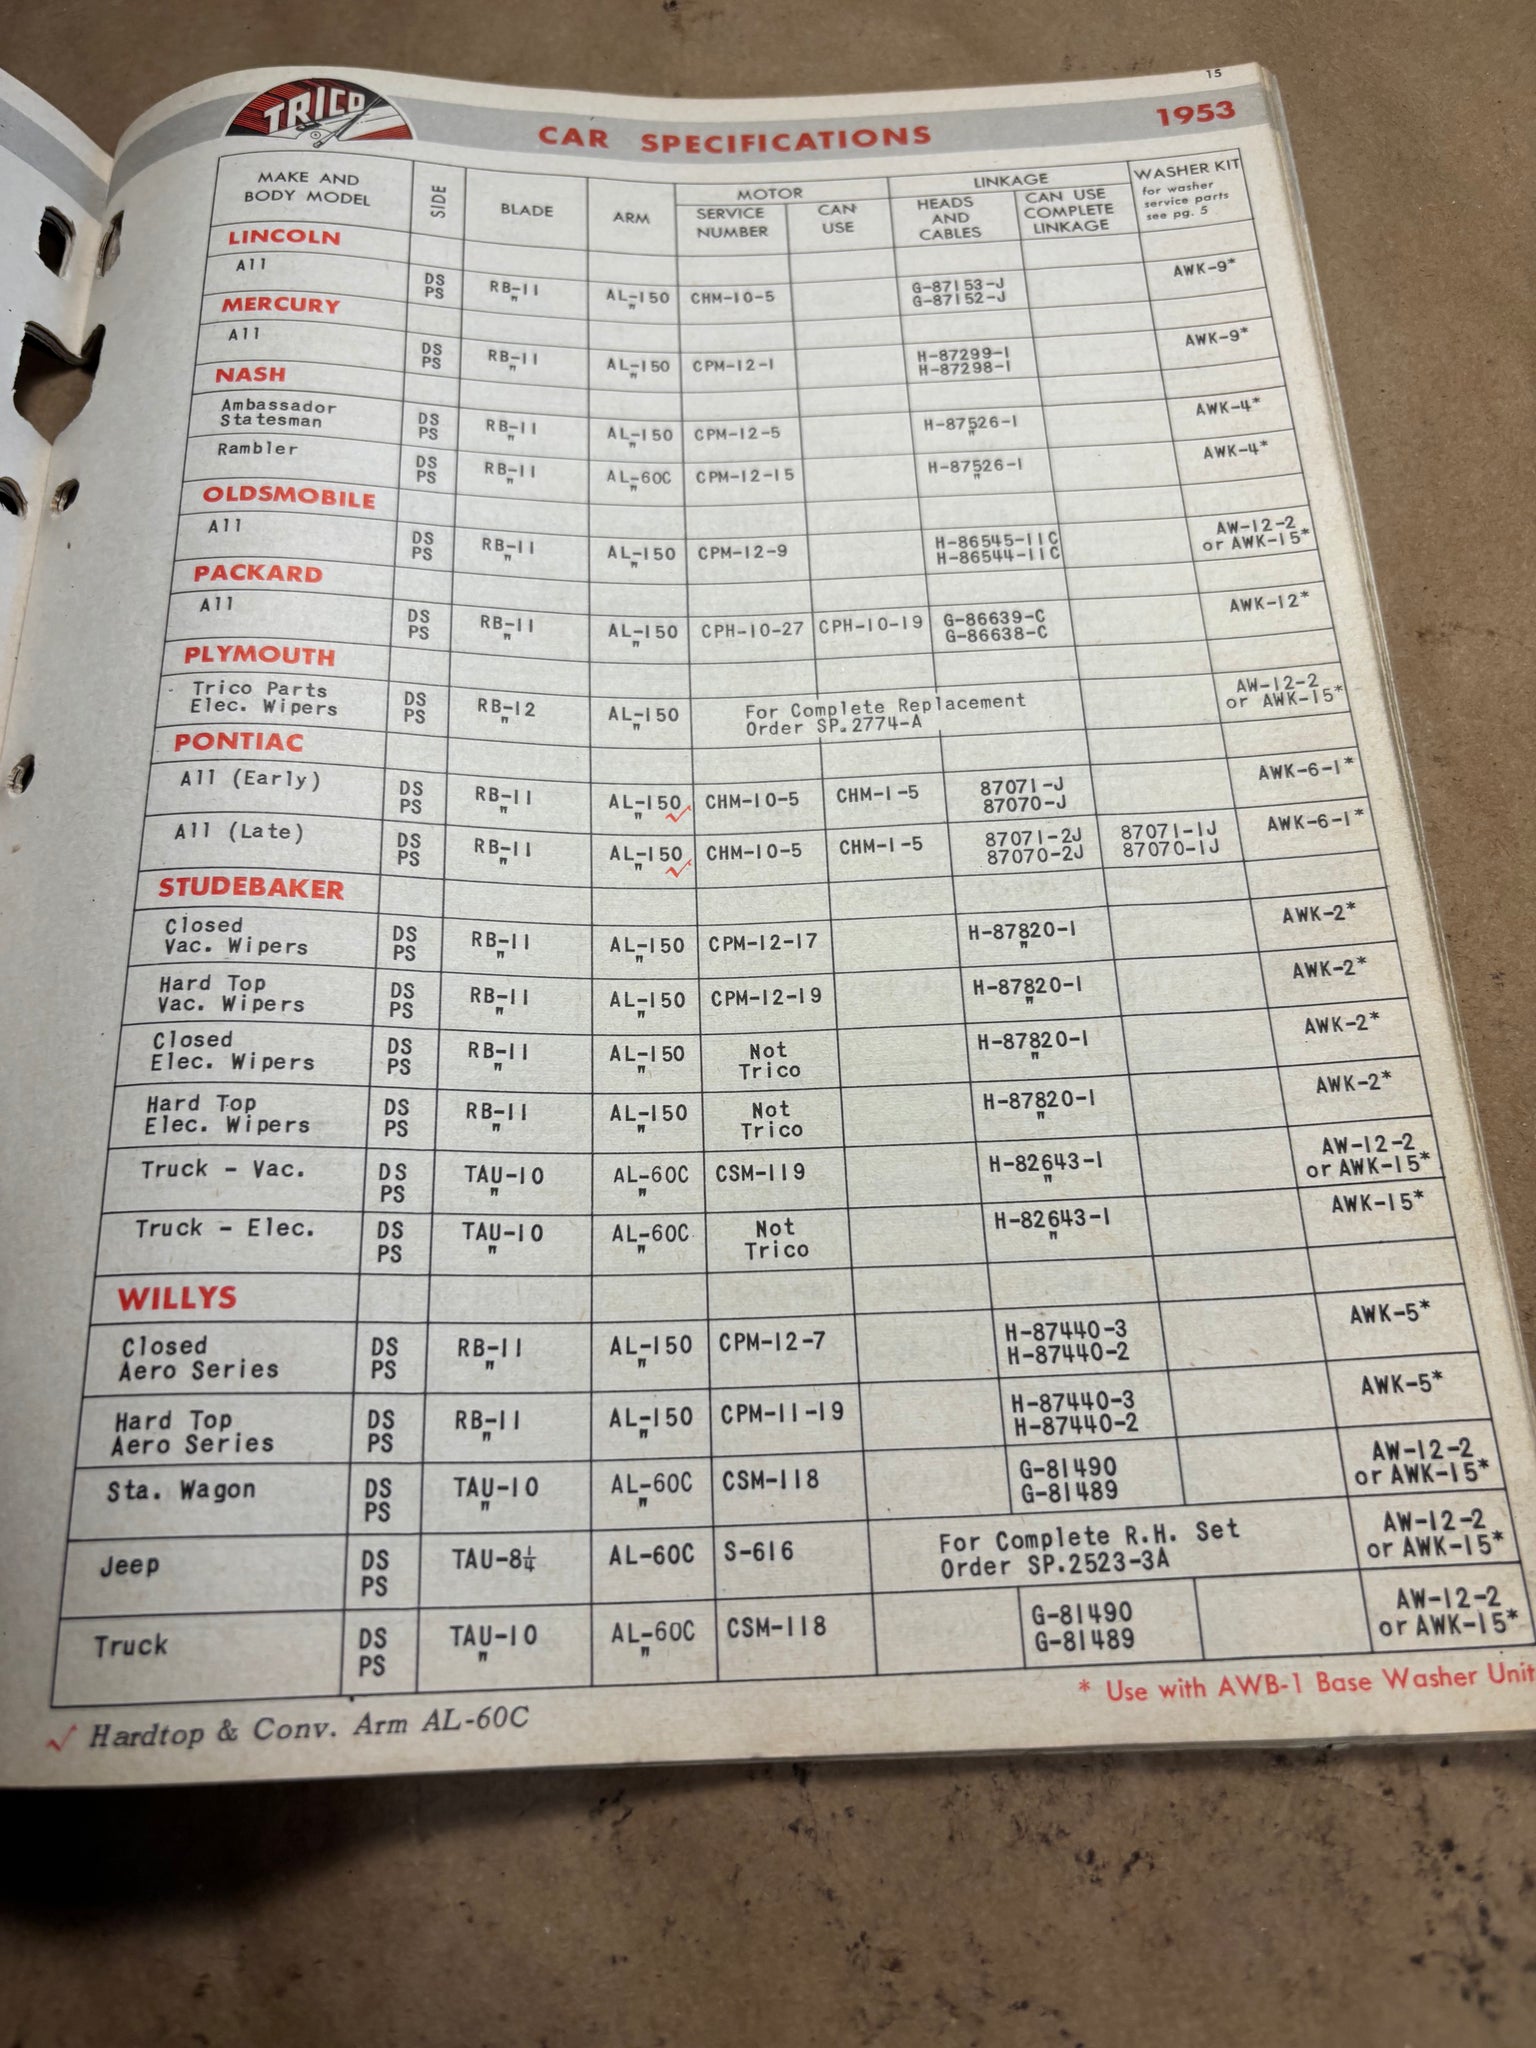 15
TRICO
CAR SPECIFICATIONS 1953
MAKE AND BODY MODEL SIDE BLADE ARM MOTOR SERVICE NUMBER CAN USE LINKAGE HEADS AND CABLES CAN USE COMPLETE LINKAGE WASHER KIT for washer service parts see pg. 5
LINCOLN
All DS RB-11 AL-150 CHM-10-5 G-87153-J AWK-9*
PS " " G-87152-J
MERCURY
All DS RB-11 AL-150 CPM-12-1 H-87299-1 AWK-9*
PS " " H-87298-1
NASH
Ambassador DS RB-11 AL-150 CPM-12-5 H-87526-1 AWK-4*
Statesman PS " " "
Rambler DS RB-11 AL-60C CPM-12-15 H-87526-1 AWK-4*
PS " " "
OLDSMOBILE
All DS RB-11 AL-150 CPM-12-9 H-86545-11C AW-12-2
PS " " H-86544-11C or AWK-15*
PACKARD
All DS RB-11 AL-150 CPH-10-27 CPH-10-19 G-86639-C AWK-12*
PS " " G-86638-C
PLYMOUTH
Trico Parts DS RB-12 AL-150 For Complete Replacement AW-12-2
Elec. Wipers PS " " Order SP.2774-A or AWK-15*
PONTIAC
All (Early) DS RB-11 AL-150 CHM-10-5 CHM-1-5 87071-J AWK-6-1*
PS " " ✓ 87070-J
All (Late) DS RB-11 AL-150 CHM-10-5 CHM-1-5 87071-2J 87071-1J AWK-6-1*
PS " " ✓ 87070-2J 87070-1J
STUDEBAKER
Closed DS RB-11 AL-150 CPM-12-17 H-87820-1 AWK-2*
Vac. Wipers PS " " "
Hard Top DS RB-11 AL-150 CPM-12-19 H-87820-1 AWK-2*
Vac. Wipers PS " " "
Closed DS RB-11 AL-150 Not H-87820-1 AWK-2*
Elec. Wipers PS " " Trico "
Hard Top DS RB-11 AL-150 Not H-87820-1 AWK-2*
Elec. Wipers PS " " Trico "
Truck - Vac. DS TAU-10 AL-60C CSM-119 H-82643-1 AW-12-2
PS " " " or AWK-15*
Truck - Elec. DS TAU-10 AL-60C Not H-82643-1 AWK-15*
PS " " Trico "
WILLYS
Closed DS RB-11 AL-150 CPM-12-7 H-87440-3 AWK-5*
Aero Series PS " " H-87440-2
Hard Top DS RB-11 AL-150 CPM-11-19 H-87440-3 AWK-5*
Aero Series PS " " H-87440-2
Sta. Wagon DS TAU-10 AL-60C CSM-118 G-81490 AW-12-2
PS " " G-81489 or AWK-15*
Jeep DS TAU-8¼ AL-60C S-616 For Complete R.H. Set AW-12-2
PS Order SP.2523-3A or AWK-15*
Truck DS TAU-10 AL-60C CSM-118 G-81490 AW-12-2
PS " " G-81489 or AWK-15*
* Use with AWB-1 Base Washer Unit
✓ Hardtop & Conv. Arm AL-60C